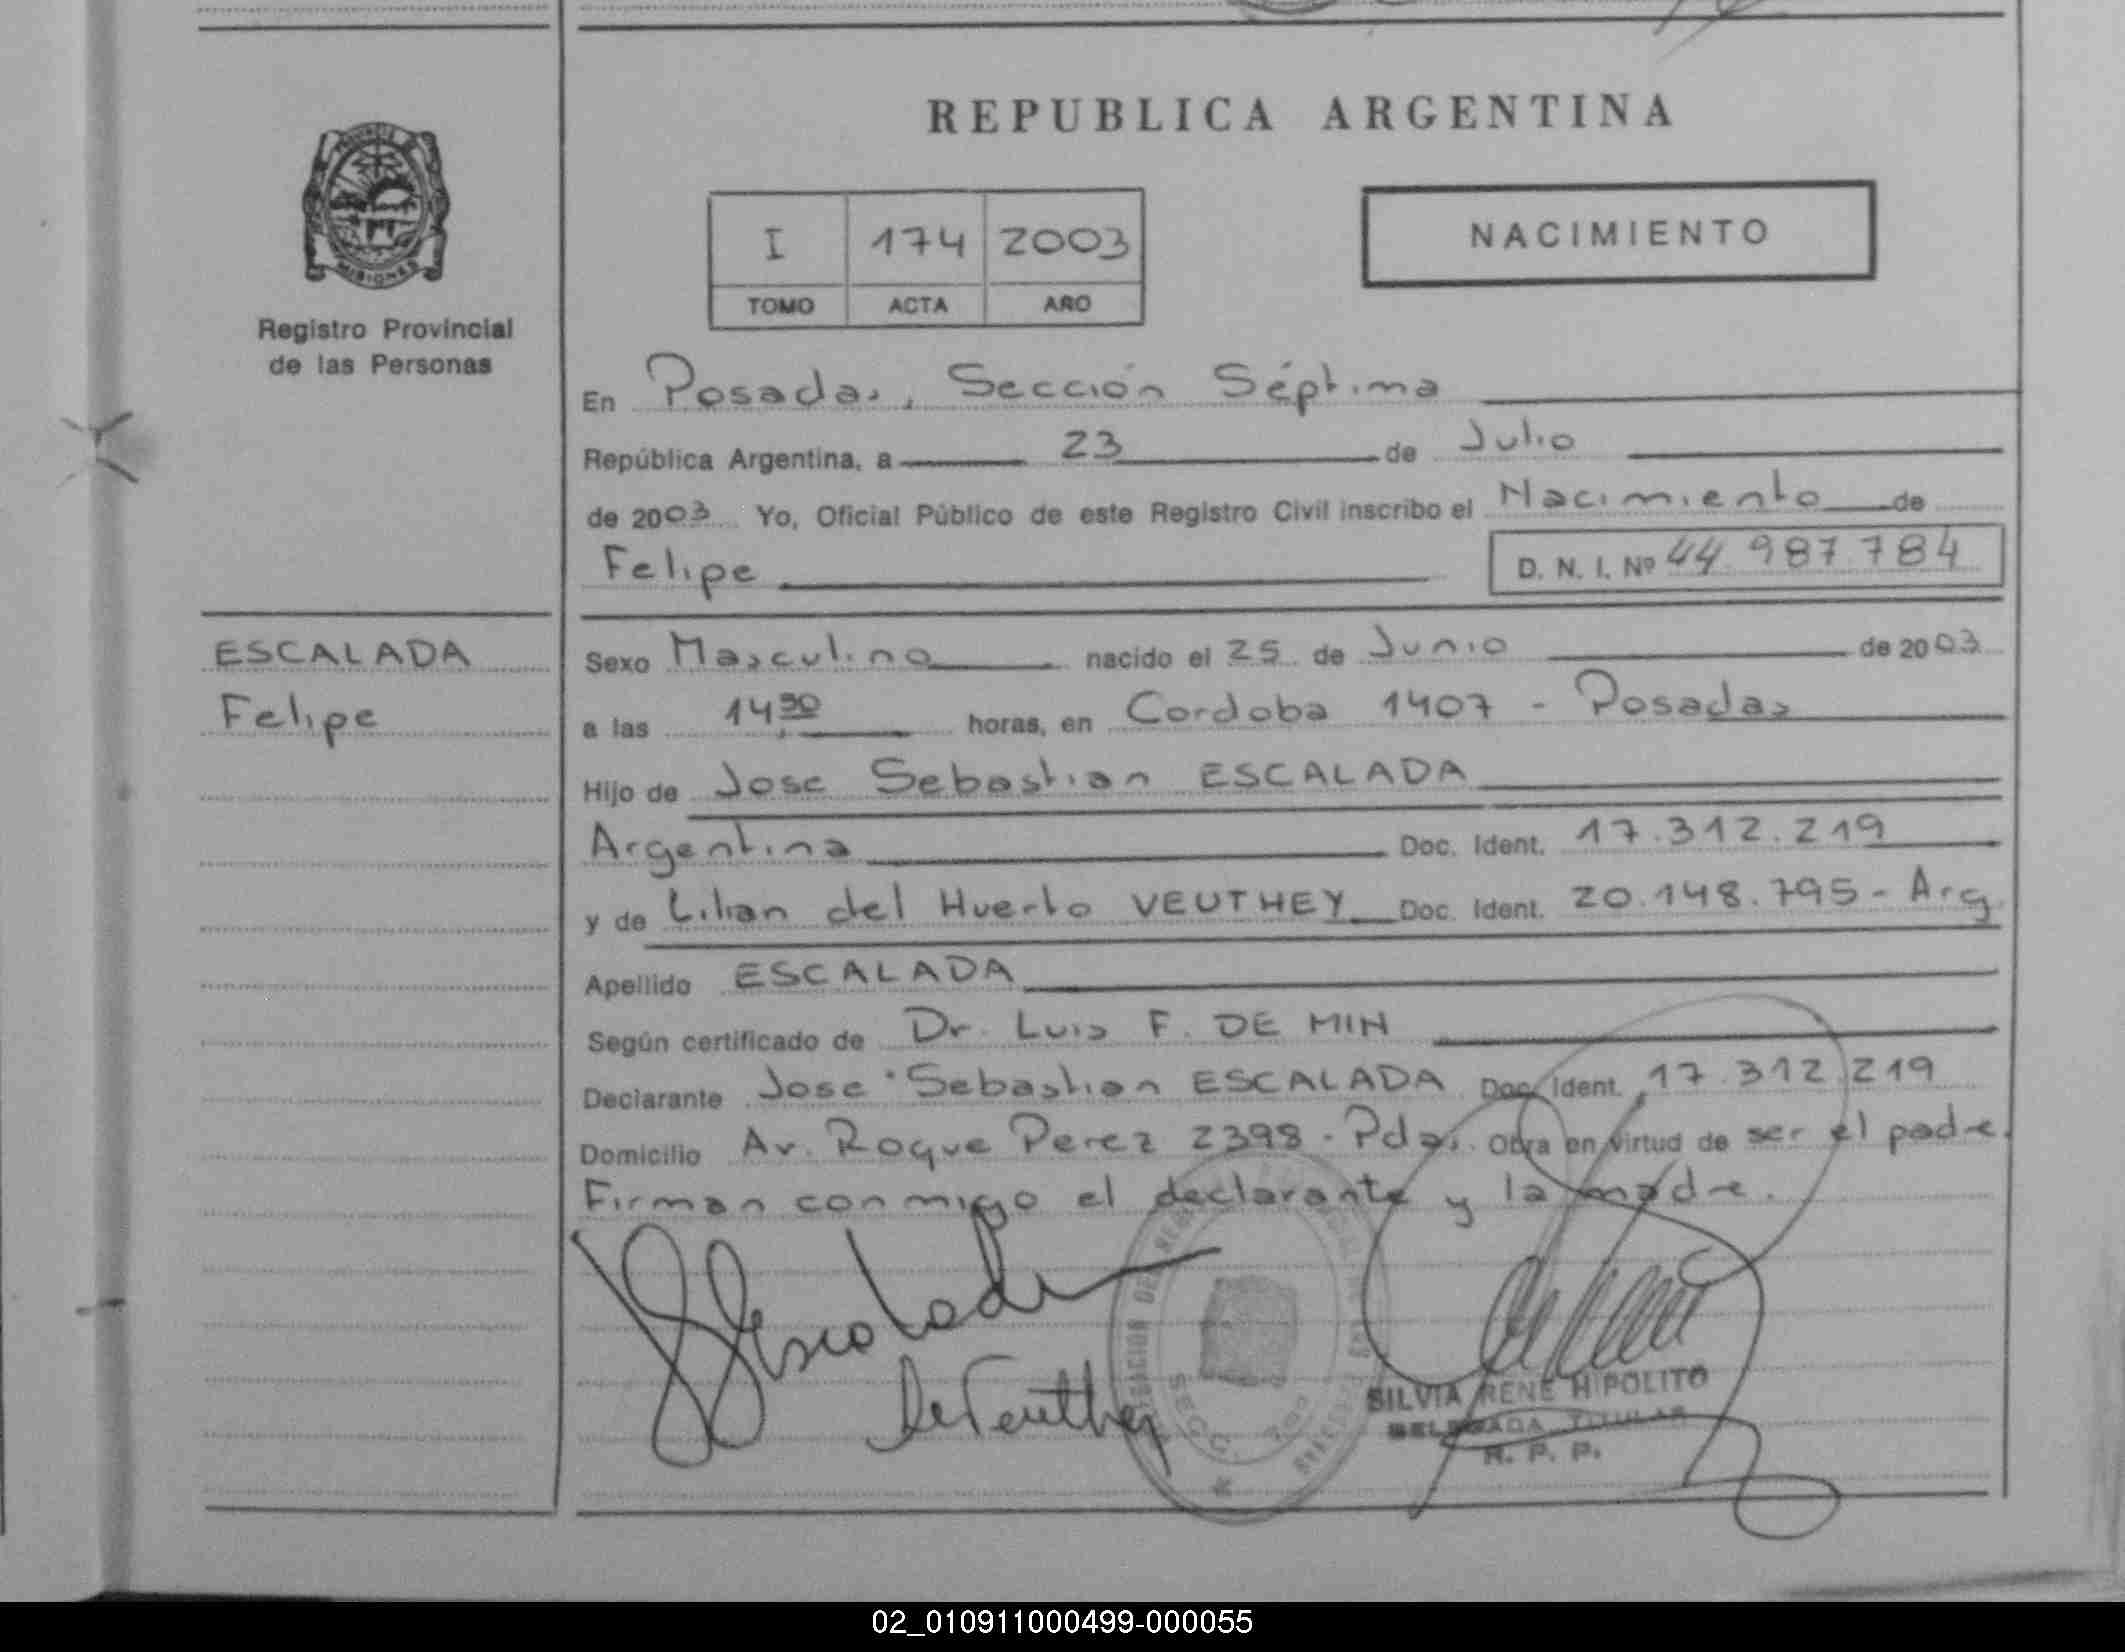 REPUBLICA ARGENTINA
PROVINCIA DE
MISIONES
Registro Provincial
de las Personas
I 174 2003
TOMO ACTA AÑO
NACIMIENTO
En Posadas, Sección Séptima
República Argentina, a 23 de Julio
de 2003 Yo, Oficial Público de este Registro Civil inscribo el Nacimiento de
Felipe D. N. I. Nº 44.987.784
ESCALADA
Felipe
Sexo Masculino nacido el 25 de Junio de 2003
a las 14,30 horas, en Cordoba 1407 - Posadas
Hijo de Jose Sebastian ESCALADA
Argentina Doc. Ident. 17.312.219
y de Lilian del Huerto VEUTHEY Doc. Ident. 20.148.795 - Arg.
Apellido ESCALADA
Según certificado de Dr. Luis F. DE MIN
Declarante Jose Sebastian ESCALADA Doc. Ident. 17.312.219
Domicilio Av. Roque Perez 2398 - Pdas. Obra en virtud de ser el padre.
Firman conmigo el declarante y la madre.
Escalada
Veuthey
SECC.
SILVIA RENE HIPOLITO
DELEGADA TITULAR
R. P. P.
02_010911000499-000055